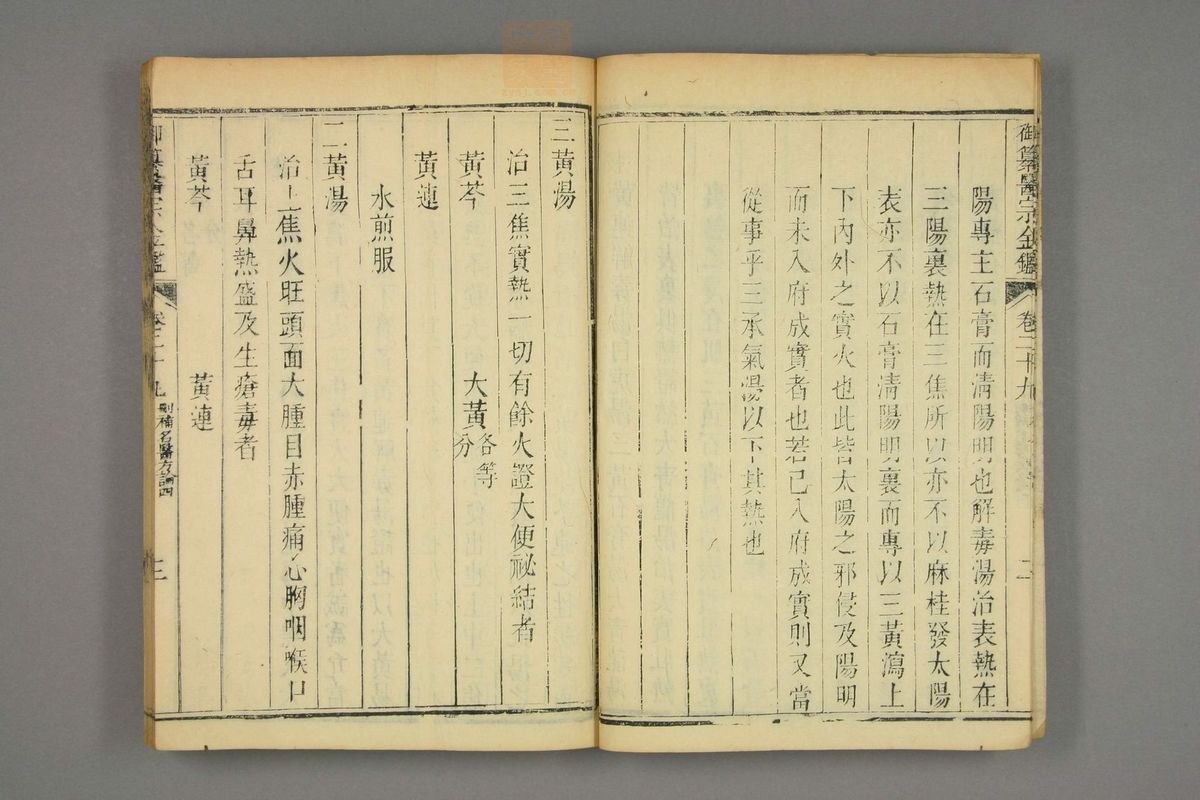 御纂醫宗金鑑 卷二十九 二
陽專主石膏而淸陽明也解毒湯治表熱在
三陽裏熱在三焦所以亦不以麻桂發太陽
表亦不以石膏淸陽明裏而專以三黃瀉上
下內外之實火也此皆太陽之邪侵及陽明
而未入府成實者也若已入府成實則又當
從事乎三承氣湯以下其熱也
三黃湯
治三焦實熱一切有餘火證大便祕結者
黃芩 大黃各等分
黃連
水煎服
二黃湯
治上焦火旺頭面大腫目赤腫痛心胸咽喉口
舌耳鼻熱盛及生瘡毒者
黃芩 黃連
御纂醫宗金鑑 卷二十九 刪補名醫方論四 三